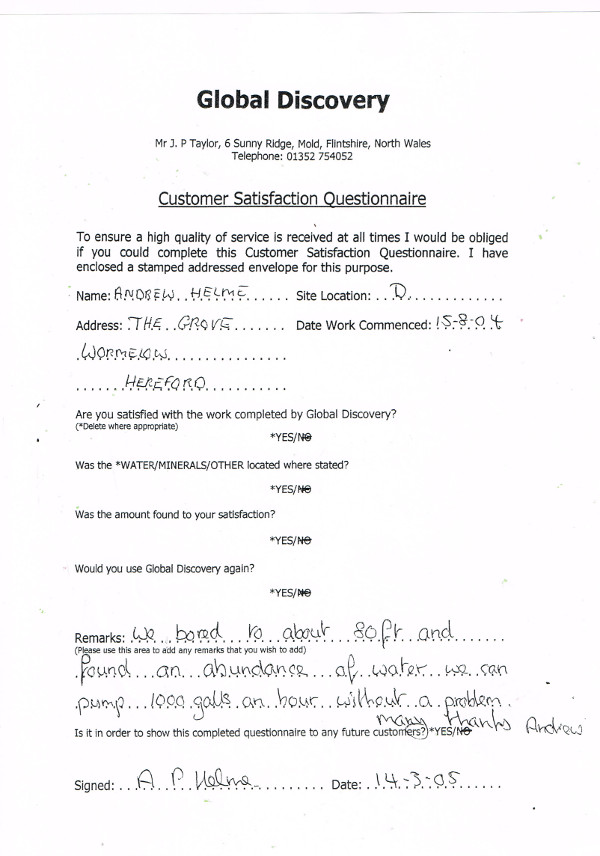 Global Discovery
Mr J. P Taylor, 6 Sunny Ridge, Mold, Flintshire, North Wales
Telephone: 01352 754052
Customer Satisfaction Questionnaire
To ensure a high quality of service is received at all times I would be obliged
if you could complete this Customer Satisfaction Questionnaire. I have
enclosed a stamped addressed envelope for this purpose.
Name: ANDREW HELME Site Location: D
Address: THE GROVE Date Work Commenced: 15-8-04
WORMELOW
HEREFORD
Are you satisfied with the work completed by Global Discovery?
(*Delete where appropriate)
*YES/NO
Was the *WATER/MINERALS/OTHER located where stated?
*YES/NO
Was the amount found to your satisfaction?
*YES/NO
Would you use Global Discovery again?
*YES/NO
Remarks: We bored to about 80ft and
(Please use this area to add any remarks that you wish to add)
found an abundance of water we can
pump 1000 galls an hour without a problem.
many thanks Andrew
Is it in order to show this completed questionnaire to any future customers? *YES/NO
Signed: A P Helme Date: 14-3-05